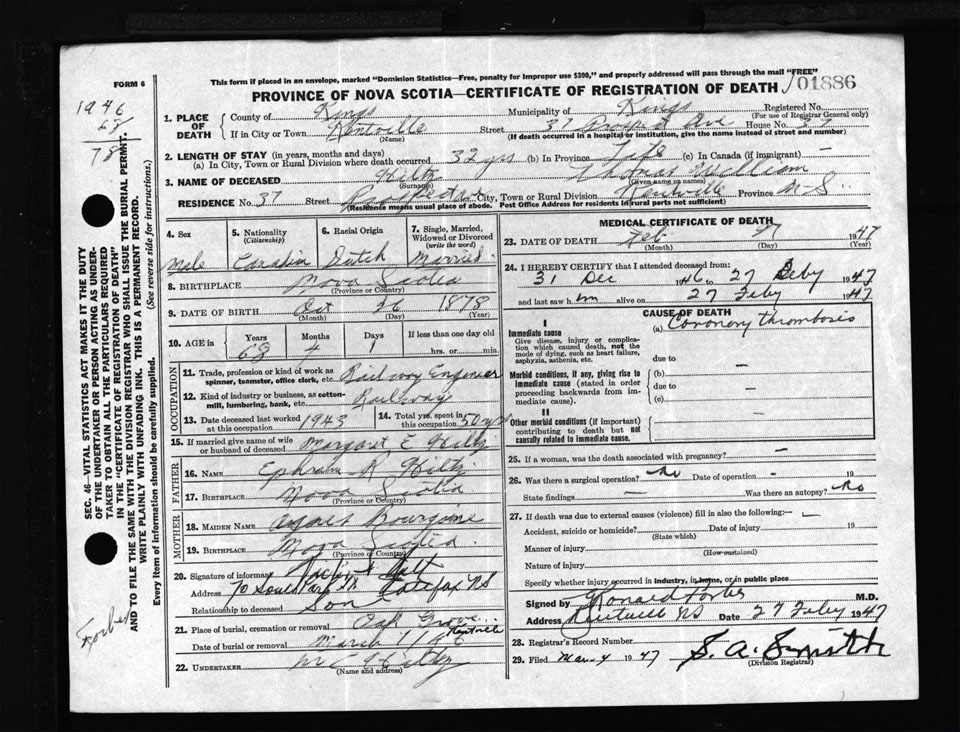 FORM 6
This form if placed in an envelope, marked "Dominion Statistics—Free, penalty for improper use $300," and properly addressed will pass through the mail "FREE"
PROVINCE OF NOVA SCOTIA—CERTIFICATE OF REGISTRATION OF DEATH
01886
1946
68
78
1. PLACE OF DEATH
County of Kings
Municipality of Kings
Registered No.
(For use of Registrar General only)
If in City or Town Kentville
(Name)
Street 37 Prospect Ave House No. 37
(If death occurred in a hospital or institution, give the name instead of street and number)
2. LENGTH OF STAY (in years, months and days)
(a) In City, Town or Rural Division where death occurred 32 yrs (b) In Province Life (c) In Canada (if immigrant) —
3. NAME OF DECEASED Hiltz Thomas William
(Surname) (Given name or names)
RESIDENCE No. 37 Street Prospect City, Town or Rural Division Kentville Province N-S.
(Residence means usual place of abode. Post Office Address for residents in rural parts not sufficient)
4. Sex
Male
5. Nationality
(Citizenship)
Canadian
6. Racial Origin
Dutch
7. Single, Married, Widowed or Divorced
(write the word)
Married.
8. BIRTHPLACE Nova Scotia
(Province or Country)
9. DATE OF BIRTH Oct 26 1878
(Month) (Day) (Year)
10. AGE in
Years Months Days If less than one day old
68 4 1 hrs. or min.
OCCUPATION
11. Trade, profession or kind of work as spinner, teamster, office clerk, etc. Railway Engineer
12. Kind of industry or business, as cotton-mill, lumbering, bank, etc. Railway
13. Date deceased last worked 1943
14. Total yrs. spent in this occupation 50 yrs
15. If married give name of wife or husband of deceased Margaret E Hiltz
FATHER
16. NAME Ephraim R Hiltz
17. BIRTHPLACE Nova Scotia
(Province or Country)
MOTHER
18. MAIDEN NAME Agnes
19. BIRTHPLACE Nova Scotia
(Province or Country)
20. Signature of informant
Address 70 South Park St Halifax NS
Relationship to deceased Son
21. Place of burial, cremation or removal Oak Grove Kentville
Date of burial or removal March 1
22. UNDERTAKER
(Name and address)
MEDICAL CERTIFICATE OF DEATH
23. DATE OF DEATH Feb 27 1947
(Month) (Day) (Year)
24. I HEREBY CERTIFY that I attended deceased from:
31 Dec 1946 to 27 Feby 1947
and last saw him alive on 27 Feby 1947
CAUSE OF DEATH
I
Immediate cause
Give disease, injury or complication which caused death, not the mode of dying, such as heart failure, asphyxia, asthenia, etc.
(a) Coronary thrombosis
due to
Morbid conditions, if any, giving rise to immediate cause (stated in order proceeding backwards from immediate cause).
(b) —
due to —
(c)
II
Other morbid conditions (if important) contributing to death but not causally related to immediate cause.
25. If a woman, was the death associated with pregnancy? —
26. Was there a surgical operation? No Date of operation — 19
State findings — Was there an autopsy? No
27. If death was due to external causes (violence) fill in also the following:—
Accident, suicide or homicide? Date of injury 19
(State which)
Manner of injury
(How sustained)
Nature of injury
Specify whether injury occurred in industry, in home, or in public place
Signed by Ronald Forbes M.D.
Address Kentville NS Date 27 Feby 1947
28. Registrar's Record Number
29. Filed Mar. 4 1947 S. A. Smith
(Division Registrar)
SEC. 46—VITAL STATISTICS ACT MAKES IT THE DUTY OF THE UNDERTAKER OR PERSON ACTING AS UNDERTAKER TO OBTAIN ALL THE PARTICULARS REQUIRED IN THE "CERTIFICATE OF REGISTRATION OF DEATH" AND TO FILE THE SAME WITH THE DIVISION REGISTRAR WHO SHALL ISSUE THE BURIAL PERMIT.
WRITE PLAINLY WITH UNFADING INK—THIS IS A PERMANENT RECORD.
Every item of Information should be carefully supplied. (See reverse side for instructions.)
Forbes